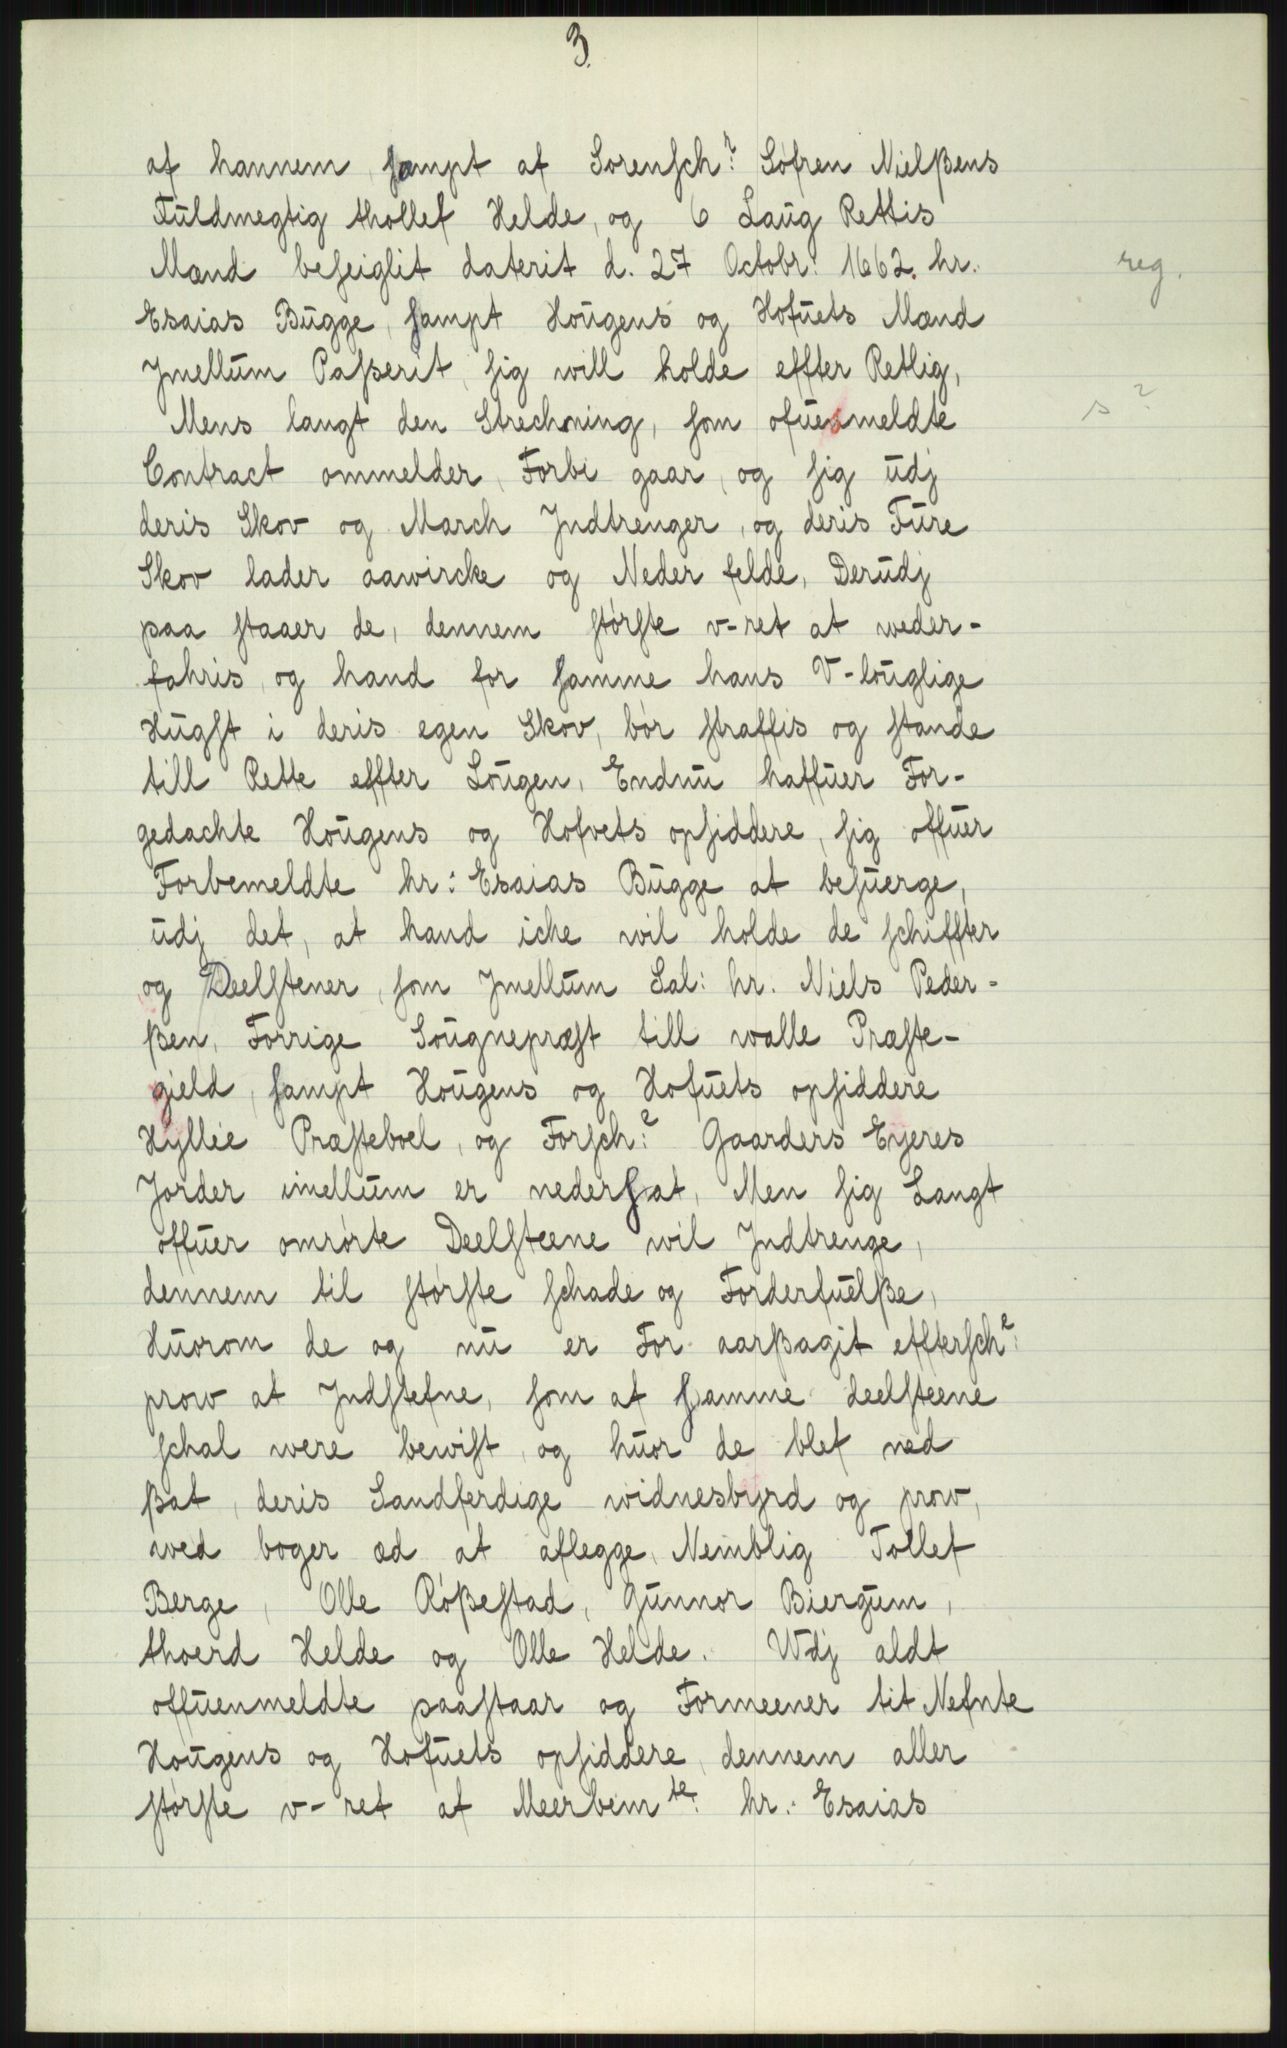 3.
af hannem, sampt af Sorensch? Søfren Nielßens
Fuldmegtig thollef Helde, og 6 Laug Rettis
Mænd beseiglit daterit d. 27 Octobr: 1662. hr.
reg.
Esaias Bugge, sampt Hougens og Hofuets Mænd
Jmellum Passerit, sig will holde effter Retlig,
Mens langt den Streckning, som ofuenmeldte
s?
Contract ommelder, Forbi gaar, og sig udj
deris Skov og March Jndtrenger, og deris Fure
Skov lader aawircke og Neder felde, Derudj
paa staaer de, dennem største v-ret at weder-
fahris, og hand for samme hans V-louglige
Hugst i deris egen Skov, bør straffis og stande
till Rette effter Lougen, Endnu haffuer For-
gedachte Hougens og Hofvets opsiddere, sig offuer
Forbemeldte hr: Esaias Bugge at besuerge,
udj det, at hand icke wil holde de schiffter
og Deelstener, som Jmellum Sal: hr. Niels Peder-
ßen, Forrige Sougnepræst till walle Præste-
gield, sampt Hougens og Hofuets opsiddere
Hyllie Præsteboel, og Forschr? Gaarders Eyeres
Jorder imellum er nedersat, Men sig Langt
offuer omrørte Deelsteene wil Jndtrenge,
dennem til største schade og Forderfuelße,
Huorom de og nu er For aarßagit efftersch?:
prow at Jndstefne, som af samme deelsteene
schal were bewist, og huor de blef ned
ßat, deris Sandferdige widnesbyrd og prow,
wed boger æd at aflegge, Nemblig Tollef
Berge, Olle Rößestad, Gunnor Biergum,
thoerd Helde og Olle Helde. Wdj aldt
offuenmeldte paastaar og Formeener tit Nefnte
Hougens og Hofuets opsiddere, dennem aller
største v-ret af Meerbem te: hr: Esaias